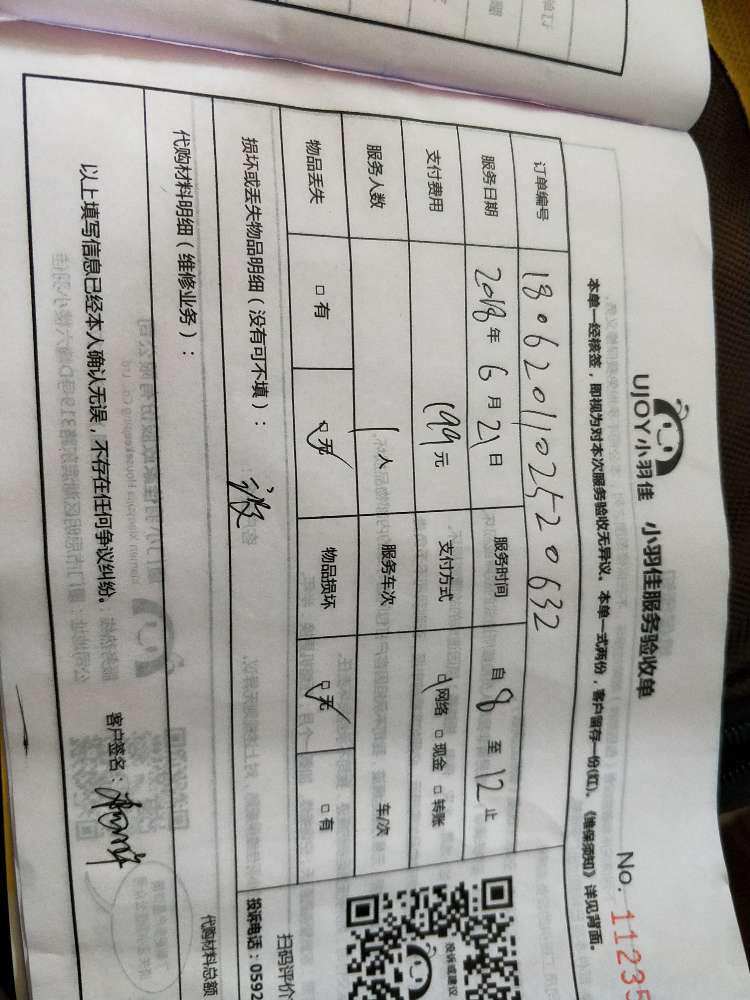 UJOY小羽佳 小羽佳服务验收单
No. 11235
本单一经核签，即视为对本次服务验收无异议。本单一式两份，客户留存一份(红)，《维保须知》详见背面。
订单编号 180620110252 0632
服务日期 2018年 6月 21日 服务时间 自 8 至 12 止
支付费用 199元 支付方式 □网络 □现金 □转账
服务人数 1人 服务车次 车/次
物品丢失 □有 □无 物品损坏 □无 □有
损坏或丢失物品明细（没有可不填）：
代购材料明细（维修业务）：
以上填写信息已经本人确认无误，不存在任何争议纠纷。
客户签名：
投诉或建议
扫码评价
投诉电话：0592
代购材料总额